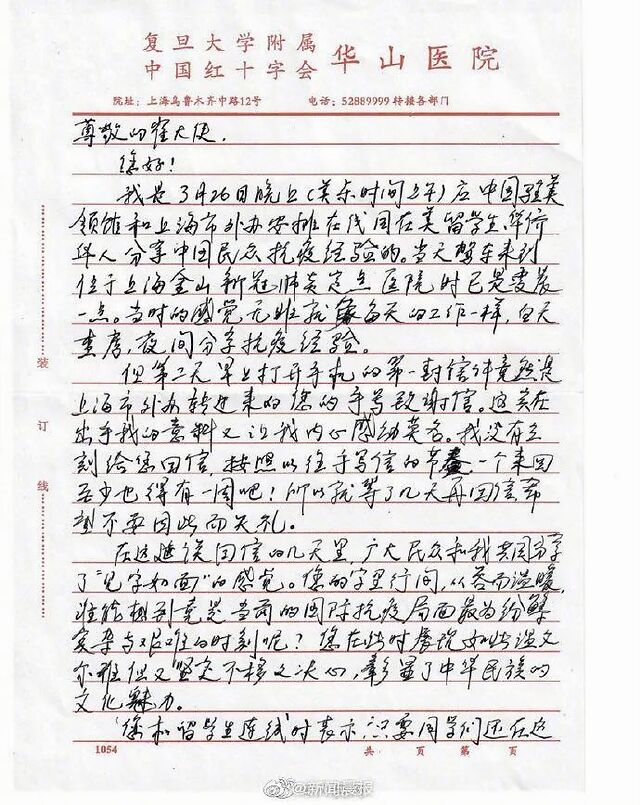 复旦大学附属
中国红十字会 华山医院
院址：上海乌鲁木齐中路12号 电话：52889999转接各部门
尊敬的崔大使，
您好！
我是3月26日晚上（美东时间上午）应中国驻美
领馆和上海市外办安排在线同在美留学生、华侨
华人分享中国民众抗疫经验的。当天驱车来到
位于上海金山新冠肺炎定点医院时已是凌晨
一点。当时的感觉无非就像每天的工作一样，白天
查房，夜间分享抗疫经验。
但第二天早上打开手机的第一封信件竟然是
上海市外办转过来的您的手写致谢信。这实在
出乎我的意料又让我内心感动莫名。我没有立
刻给您回信，按照以往手写信的节奏一个来回
至少也得有一周吧！所以就等了几天再回信希
望不要因此而失礼。
在这延误回信的几天里，广大民众和我共同分享
了"见字如面"的感觉。您的字里行间，从容而温暖，
谁能想到竟是当前的国际抗疫局面最为纷繁
复杂与艰难的时刻呢？您在此时展现如此温文
尔雅但又坚定不移之决心，彰显了中华民族的
文化魅力。
您和留学生连线时表示，只要同学们还在这
装
订
线
1054 共 页 第 页
@新闻晨报